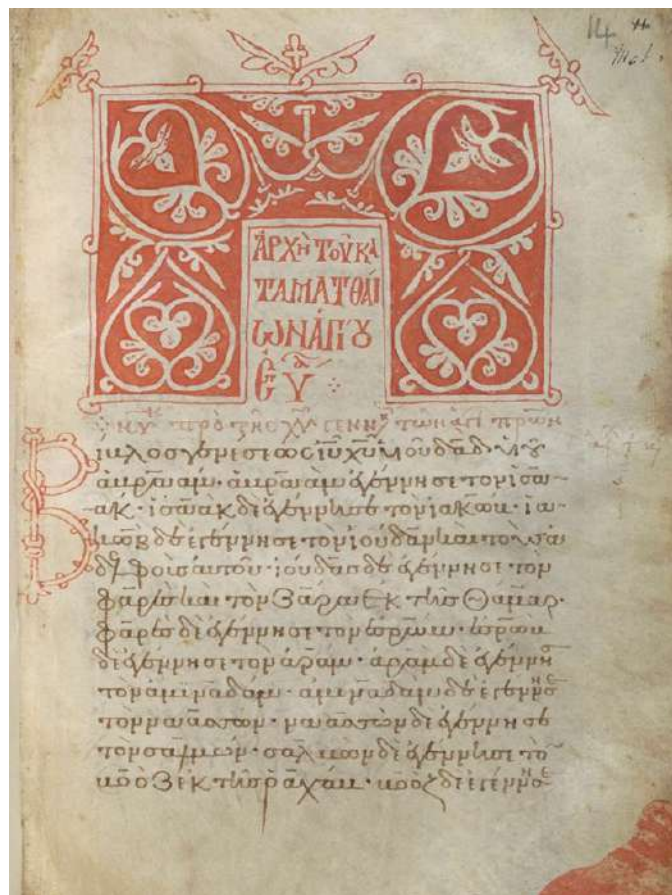 14
ΑΡΧΗ ΤΟΥ ΚΑ
ΤΑ ΜΑΤΘΑΙ
ΩΝ ΑΓΙΟΥ
ΕΥ
πρὸ τῆς χυ γενν τῶν ἁγί πρων
Βίβλος γενέσεως ιυ χυ υυ δαδ υυ
ἀβραάμ· ἀβραὰμ ἐγέννησε τὸν ἰσα
άκ· ἰσαὰκ δὲ ἐγέννησε τὸν ἰακώβ· ἰα
κὼβ δὲ ἐγέννησε τὸν ἰούδαν καὶ τοὺς ἀ
δελφοὺς αὐτοῦ· ἰούδας δὲ ἐγέννησε τὸν
φαρὲς καὶ τὸν ζαρὰ ἐκ τῆς θάμαρ·
φαρὲς δὲ ἐγέννησε τὸν ἐσρώμ· ἐσρὼμ
δὲ ἐγέννησε τὸν ἀράμ· ἀρὰμ δὲ ἐγέννη
τὸν ἀμιναδάμ· ἀμιναδὰμ δὲ ἐγέννησε
τὸν ναασσών· ναασσὼν δὲ ἐγέννησε
τὸν σαλμών· σαλμὼν δὲ ἐγέννησε τὸ
βοὸζ ἐκ τῆς ῥαχάμ· βοὸζ δὲ ἐγέννησε